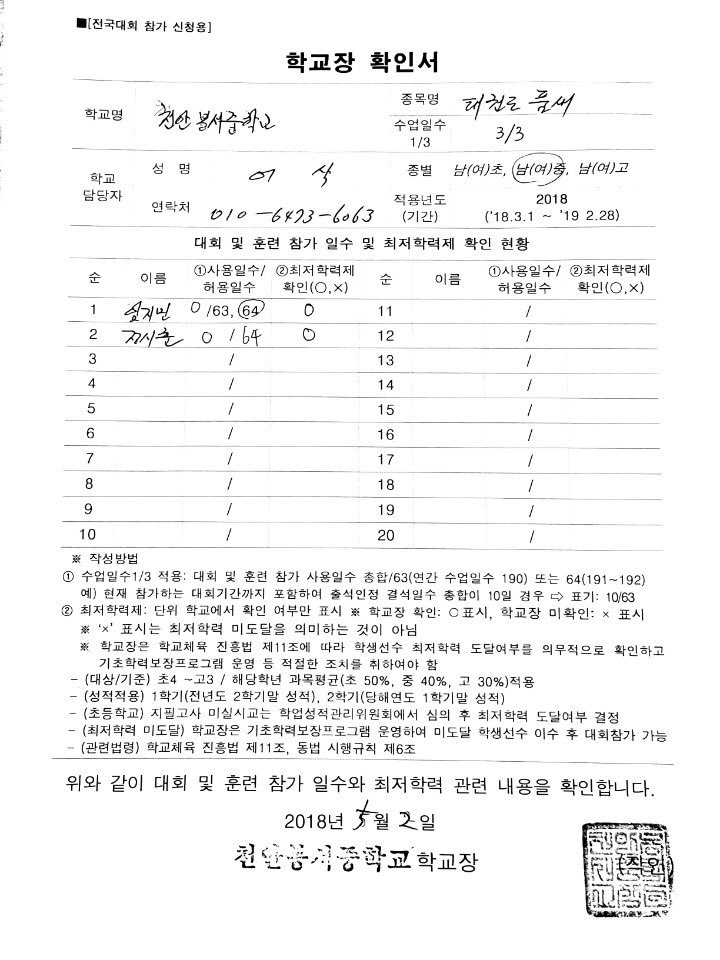 ■[전국대회 참가 신청용]
학교장 확인서
학교명 천안봉서중학교 종목명 태권도 품새
수업일수 1/3 3/3
학교 담당자 성 명 종별 남(여)초, 남(여)중, 남(여)고
연락처 010-6473-6063 적용년도 (기간) 2018 ('18.3.1 ~ '19 2.28)
대회 및 훈련 참가 일수 및 최저학력제 확인 현황
순 이름 ①사용일수/허용일수 ②최저학력제 확인(○,×) 순 이름 ①사용일수/허용일수 ②최저학력제 확인(○,×)
1 0/63, 64 0 11 /
2 0/64 0 12 /
3 / 13 /
4 / 14 /
5 / 15 /
6 / 16 /
7 / 17 /
8 / 18 /
9 / 19 /
10 / 20 /
※ 작성방법
① 수업일수1/3 적용: 대회 및 훈련 참가 사용일수 총합/63(연간 수업일수 190) 또는 64(191~192)
예) 현재 참가하는 대회기간까지 포함하여 출석인정 결석일수 총합이 10일 경우 ⇨ 표기: 10/63
② 최저학력제: 단위 학교에서 확인 여부만 표시 ※ 학교장 확인: ○표시, 학교장 미확인: × 표시
※ '×' 표시는 최저학력 미도달을 의미하는 것이 아님
※ 학교장은 학교체육 진흥법 제11조에 따라 학생선수 최저학력 도달여부를 의무적으로 확인하고
기초학력보장프로그램 운영 등 적절한 조치를 취하여야 함
- (대상/기준) 초4 ~고3 / 해당학년 과목평균(초 50%, 중 40%, 고 30%)적용
- (성적적용) 1학기(전년도 2학기말 성적), 2학기(당해연도 1학기말 성적)
- (초등학교) 지필고사 미실시교는 학업성적관리위원회에서 심의 후 최저학력 도달여부 결정
- (최저학력 미도달) 학교장은 기초학력보장프로그램 운영하여 미도달 학생선수 이수 후 대회참가 가능
- (관련법령) 학교체육 진흥법 제11조, 동법 시행규칙 제6조
위와 같이 대회 및 훈련 참가 일수와 최저학력 관련 내용을 확인합니다.
2018년 5월 2일
천안봉서중학교 학교장 (직인)